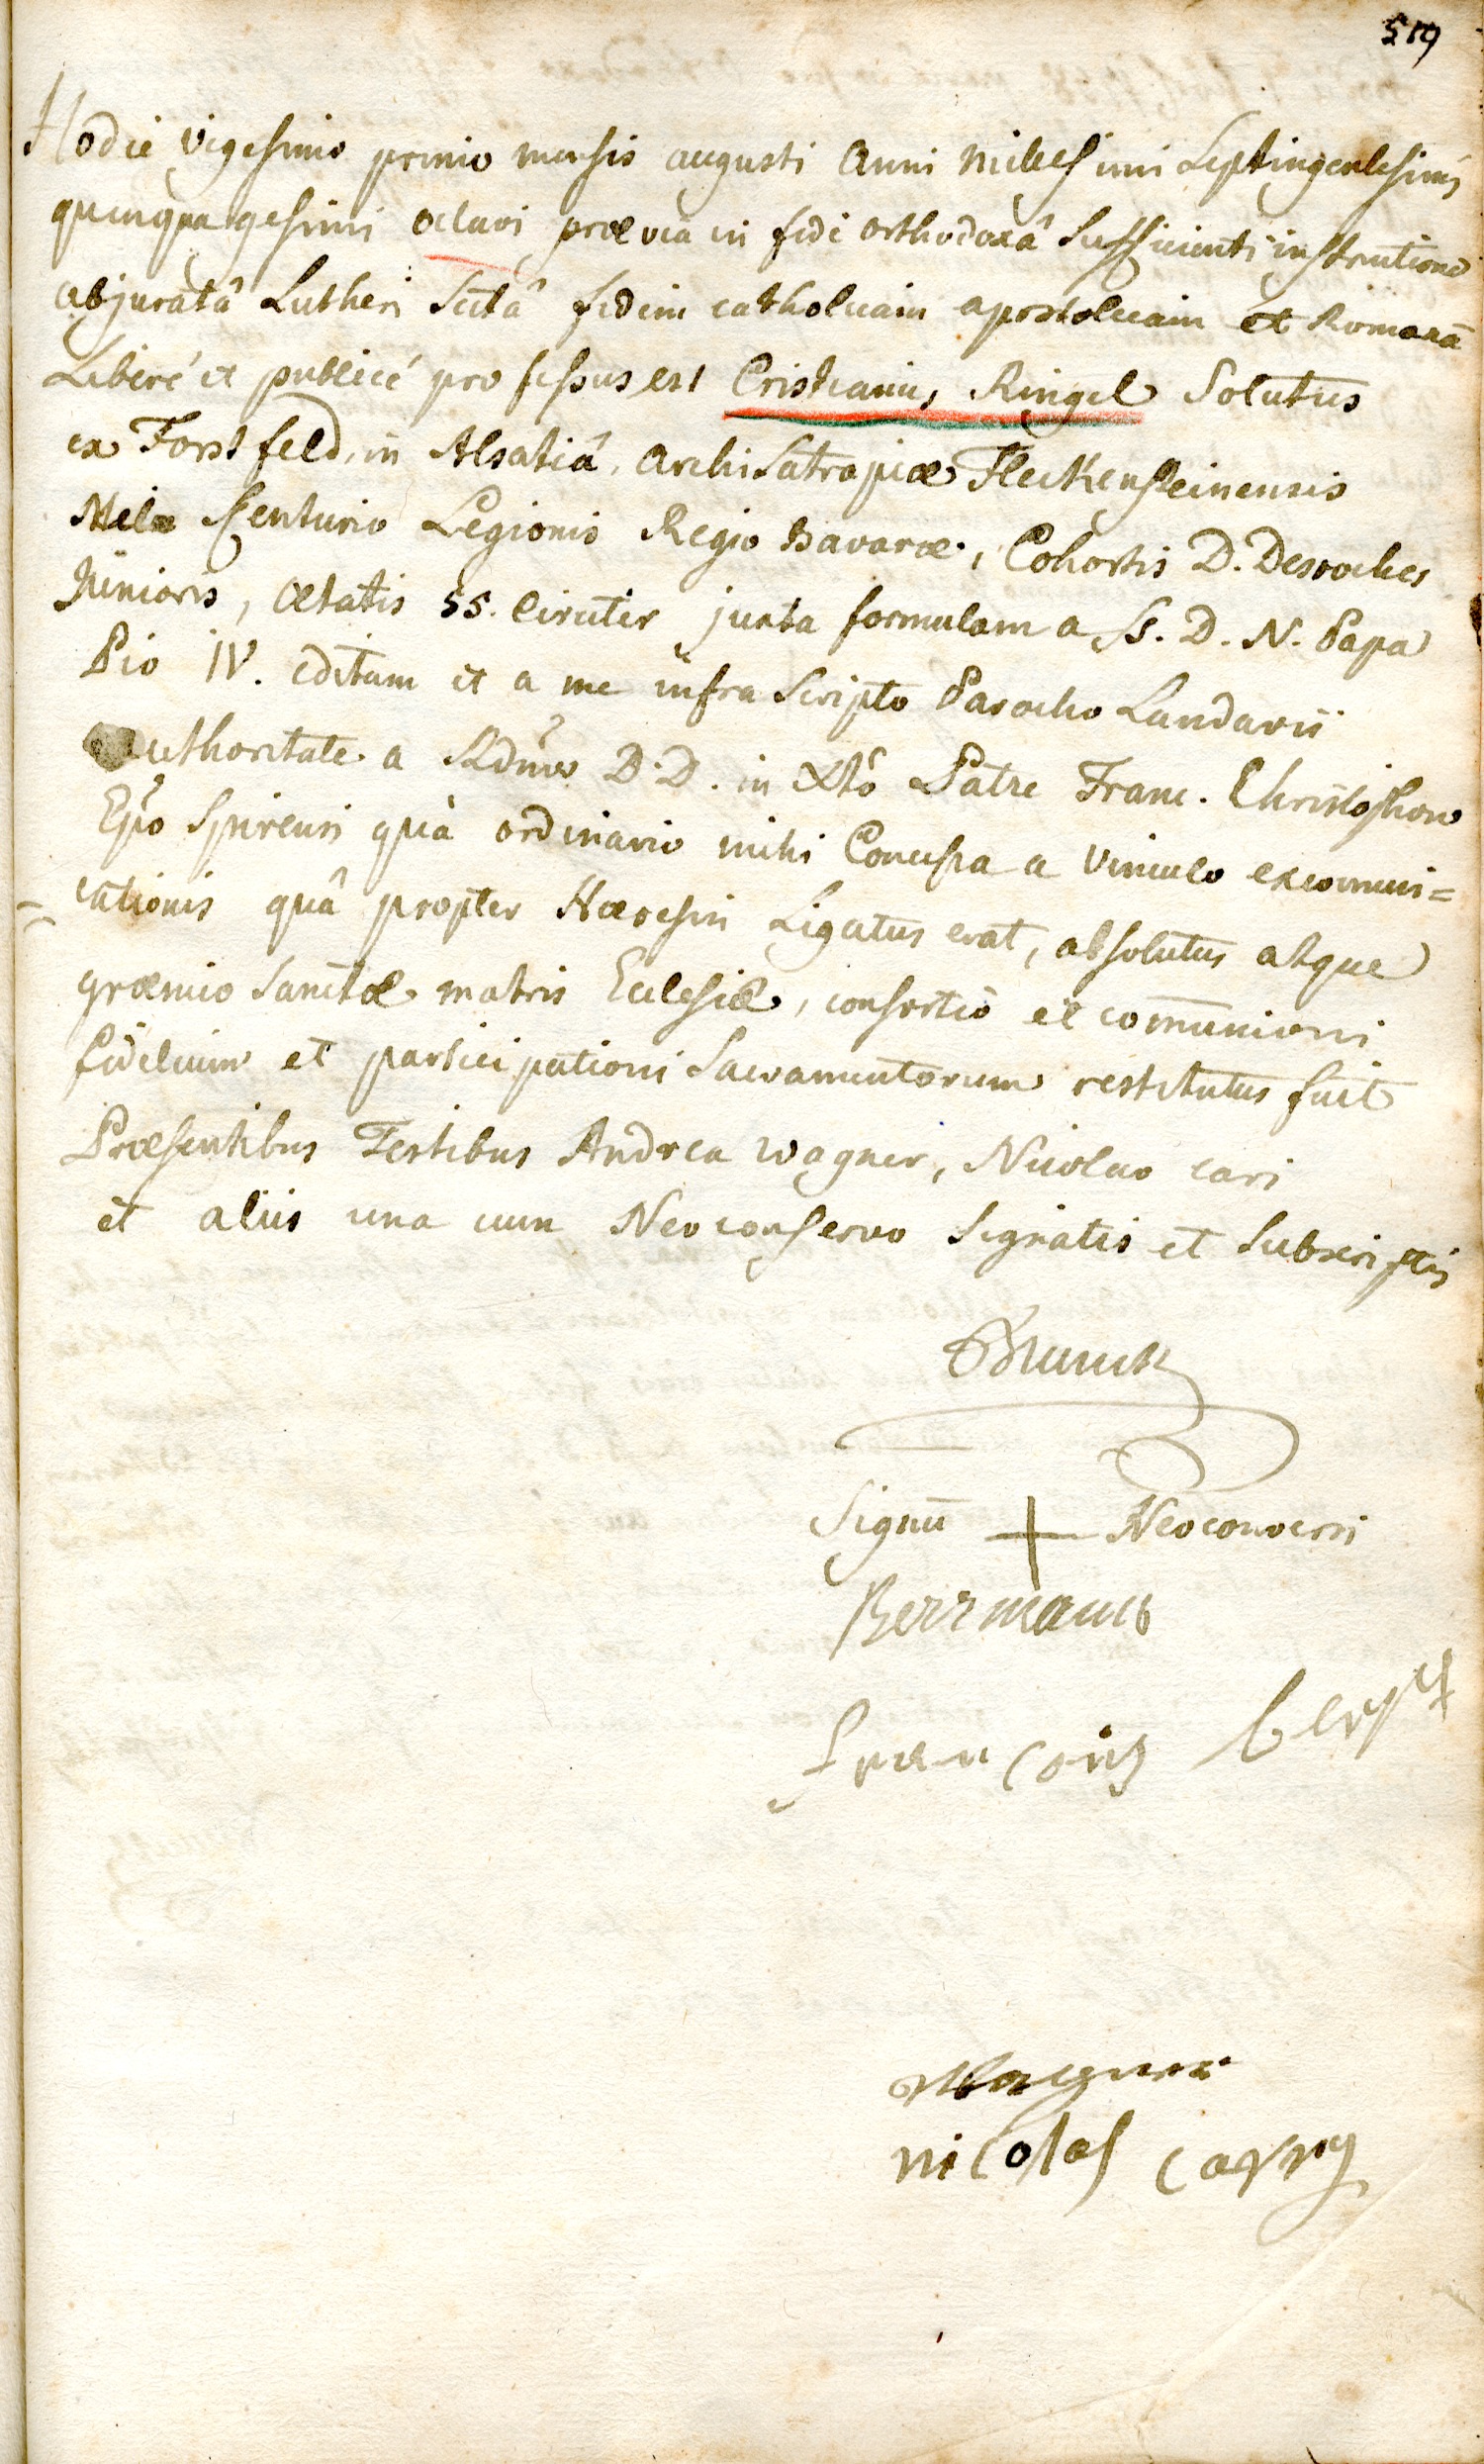 519
Hodie vigesimo primo mensis augusti Anni millesimi Septingentesimi
quinquagesimi octavi prævia in fide orthodoxâ sufficienti instructione
abjuratâ Lutheri Sectâ fidem catholicam apostolicam et Romanã
Liberé et publicé professus est Cristianus Ringel Solutus
ex Forstfeld, in Alsatiâ, ArchiSatrapiæ Fleckensteinensis
Centurio Legionis Regio Bavaræ, Cohortis D. Desroches
Junioris, ætatis 55. circiter juxta formulam a SS. D. N. Papa
Pio IV. editam et a me infra Scripto Parocho Landavii
authoritate a Rdmo D.D. in Xto Patre Franc. Christophoro
Epo Spirensi quà ordinario mihi Concessa a vinculo excommuni=
cationis quâ propter Hæresin Ligatus erat, absolutus atque
græmio Sanctæ matris Ecclesiæ, consortio et comunioni
fidelium et participationi Sacramentorum restitutus fuit
Præsentibus Testibus Andrea Wagner, Nicolao cari
et aliis una cum Neoconverso Signatis et Subscriptis
Signū + Neoconversi
Berrmann
françois
Wagner
nicolas